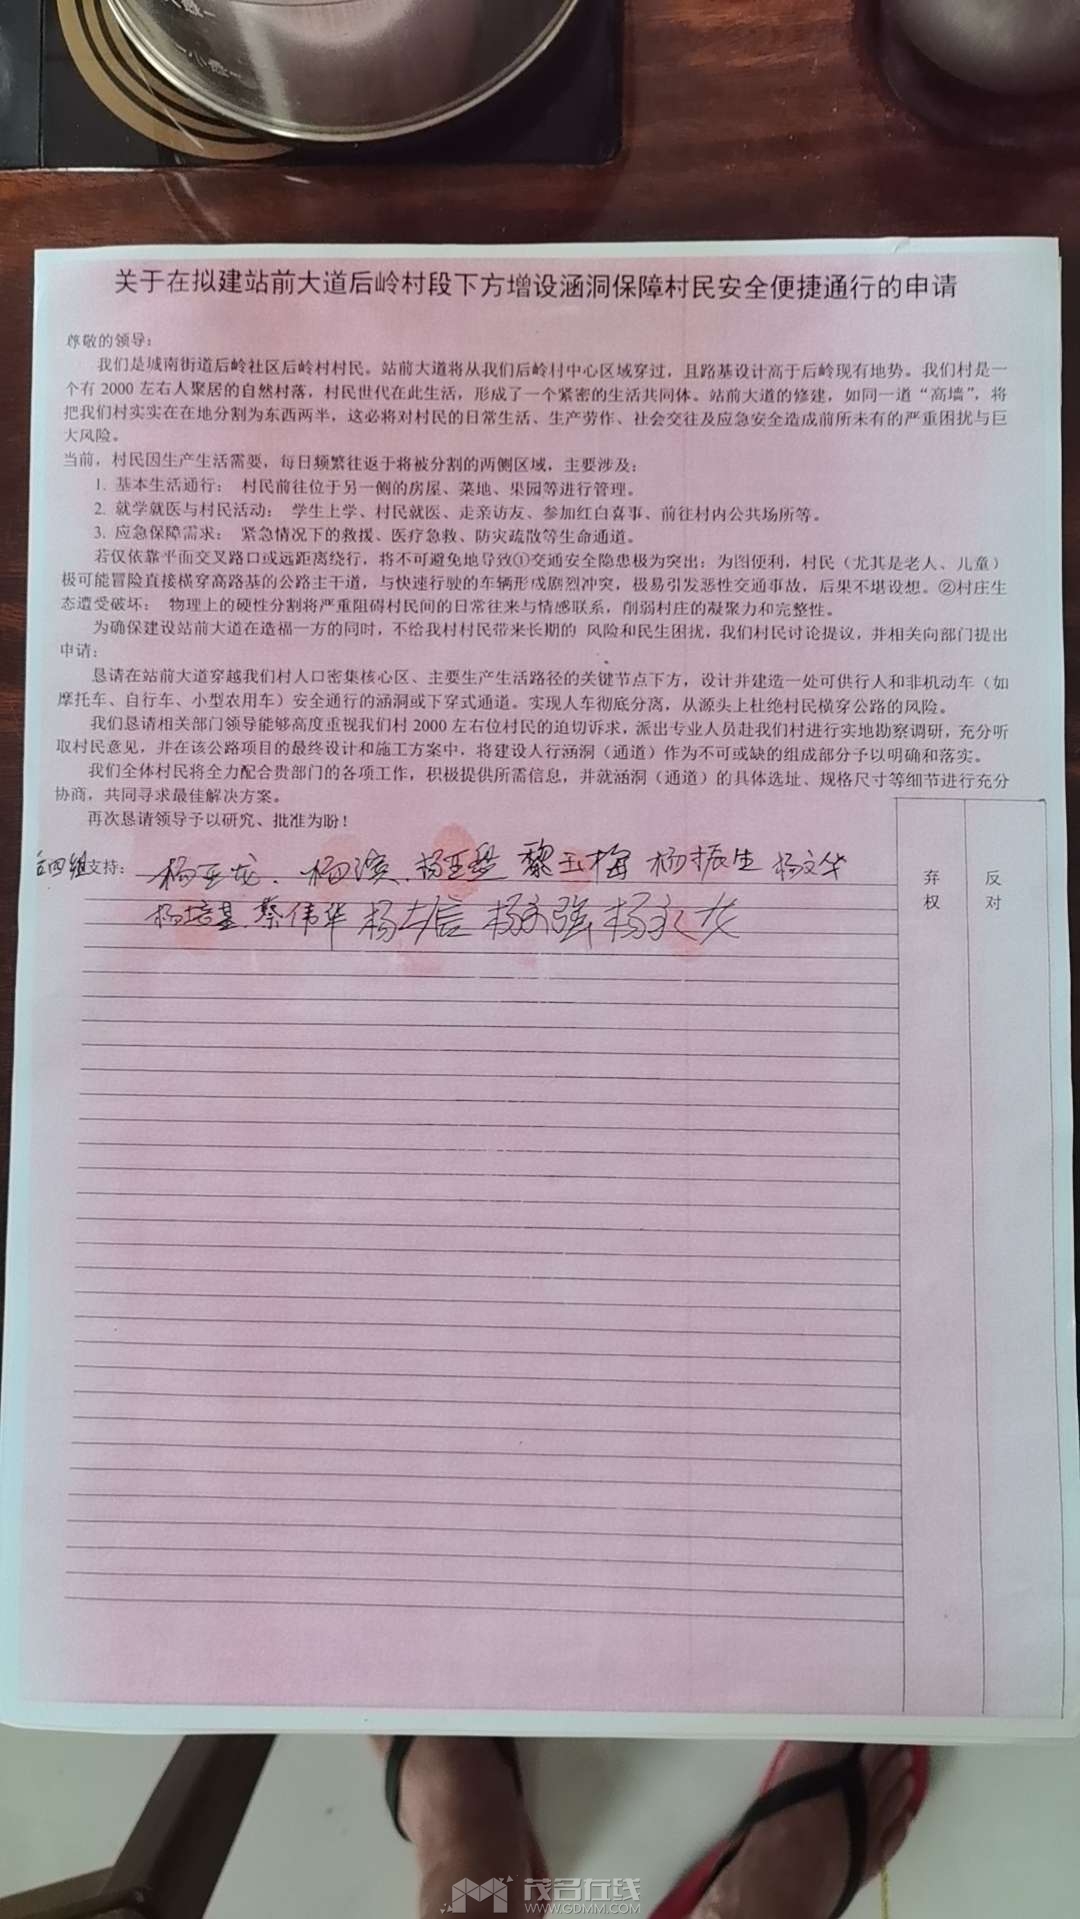 关于在拟建站前大道后岭村段下方增设涵洞保障村民安全便捷通行的申请
尊敬的领导：
我们是城南街道后岭社区后岭村村民。站前大道将从我们后岭村中心区域穿过，且路基设计高于后岭现有地势。我们村是一
个有 2000 左右人聚居的自然村落，村民世代在此生活，形成了一个紧密的生活共同体。站前大道的修建，如同一道“高墙”，将
把我们村实实在在地分割为东西两半，这必将对村民的日常生活、生产劳作、社会交往及应急安全造成前所未有的严重困扰与巨
大风险。
当前，村民因生产生活需要，每日频繁往返于将被分割的两侧区域，主要涉及：
1. 基本生活通行： 村民前往位于另一侧的房屋、菜地、果园等进行管理。
2. 就学就医与村民活动： 学生上学、村民就医、走亲访友、参加红白喜事、前往村内公共场所等。
3. 应急保障需求： 紧急情况下的救援、医疗急救、防灾疏散等生命通道。
若仅依靠平面交叉路口或远距离绕行，将不可避免地导致①交通安全隐患极为突出：为图便利，村民（尤其是老人、儿童）
极可能冒险直接横穿高路基的公路主干道，与快速行驶的车辆形成剧烈冲突，极易引发恶性交通事故，后果不堪设想。②村庄生
态遭受破坏： 物理上的硬性分割将严重阻碍村民间的日常往来与情感联系，削弱村庄的凝聚力和完整性。
为确保建设站前大道在造福一方的同时，不给我村村民带来长期的 风险和民生困扰，我们村民讨论提议，并相关向部门提出
申请：
恳请在站前大道穿越我们村人口密集核心区、主要生产生活路径的关键节点下方，设计并建造一处可供行人和非机动车（如
摩托车、自行车、小型农用车）安全通行的涵洞或下穿式通道。实现人车彻底分离，从源头上杜绝村民横穿公路的风险。
我们恳请相关部门领导能够高度重视我们村 2000 左右位村民的迫切诉求，派出专业人员赴我们村进行实地勘察调研，充分听
取村民意见，并在该公路项目的最终设计和施工方案中，将建设人行涵洞（通道）作为不可或缺的组成部分予以明确和落实。
我们全体村民将全力配合贵部门的各项工作，积极提供所需信息，并就涵洞（通道）的具体选址、规格尺寸等细节进行充分
协商，共同寻求最佳解决方案。
再次恳请领导予以研究、批准为盼！
四组支持： 杨亚龙 杨滨 黎玉梅 杨振生 杨文华
杨培基 蔡伟华 杨永强
弃权
反对
茂名在线
WWW.GDMM.COM